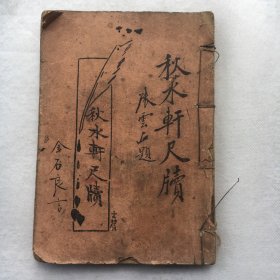 秋水軒尺牘
張雲上題
秋水軒尺牘
金石良言